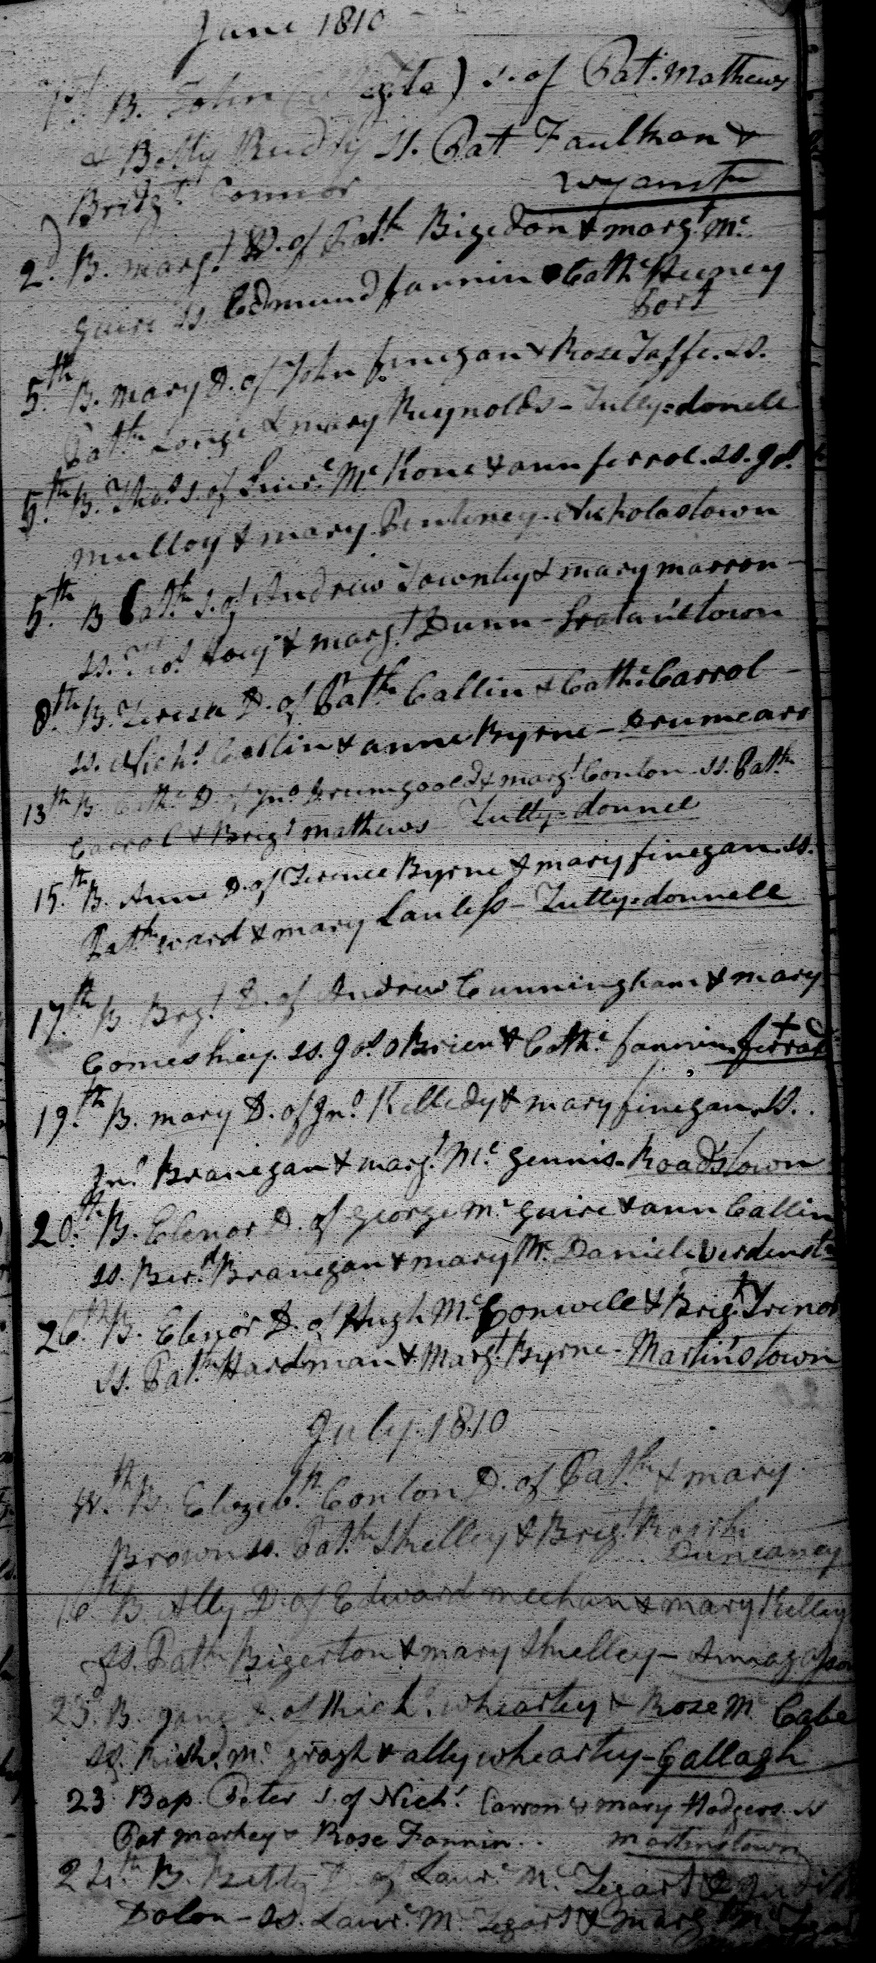 June 1810
1st B. John s. of Pat. Mathews
& Betty Ss. Pat Faulkon &
Bridgt. Connor
2d. B. margt. D. of Path. Bigedon & margt. Mc.
guire Ss. Edmund fannin & Cathe. Heeney
Port
5.th B. mary D. of John finegan & Rose Taffe. Ss.
Path. Longe & mary Reynolds - Tully=donell
5.th B. Thos. s. of Lawre. Mc. Kone & ann ferrol. Ss. Jas.
Mulloy & mary Nicholastown
5.th B Path. s. of Andrew Townley & mary marron -
Ss. Thos. & margt. Dunn -
8.th B. Teresa D. of Path. Callin & Cathe. Carrol -
Ss. Nichs. Callin & anne Byrne - Drumcarr
13th B. Cathe. D. of Jno. Drumgoold & margt. Conlon. Ss. Path.
Carrol & Brigt. mathews Tully=donnel
15.th B. Anne D. of Terence Byrne & mary finegan. Ss.
Path. ward & mary Lawless - Tully=donnell
17.th B Brgt. D. of Andrew Cunningham & mary
Comeskey. Ss. Jas. OBrien & Cathe. fannin.
19.th B. mary D. of Jno. Kelledy & mary finegan. Ss.
Jno. Branegan & margt. Mc. gennis - Roadstown
20.th B. Elenor D. of george Mc. guire & ann Callin
Ss. Berd. Branegan & mary Mc. Daniel.
26.th B. Elenor D. of Hugh Mc. Conwell & Brigt. Trenor
Ss. Path. Hardman & Margt. Byrne - Martinstown
July. 1810
B. Elizabth. Conlon D. of Path. & mary.
Brown Ss. Path. Shelley & Brigt. Roark
Duncaney
16th B. Ally D. of Edward meehan & mary Kelley
Ss. Path. Bigerton & mary Shelley - Annagasson
23d. B. Jane D. of Richd. whearley & Rose Mc. Cabe
Ss. Richd. Mc. grath & ally whearty - Gallagh
23 Bap. Peter s. of Nichs. Carron & mary Hodgers. Ss
Pat Markey & Rose Fannin.. Martinstown
24th. B. Betty D. of Lawre. Mc. Tegart &
Dolon - Ss. Lawre. Mc. Tegart & margt. Mc.